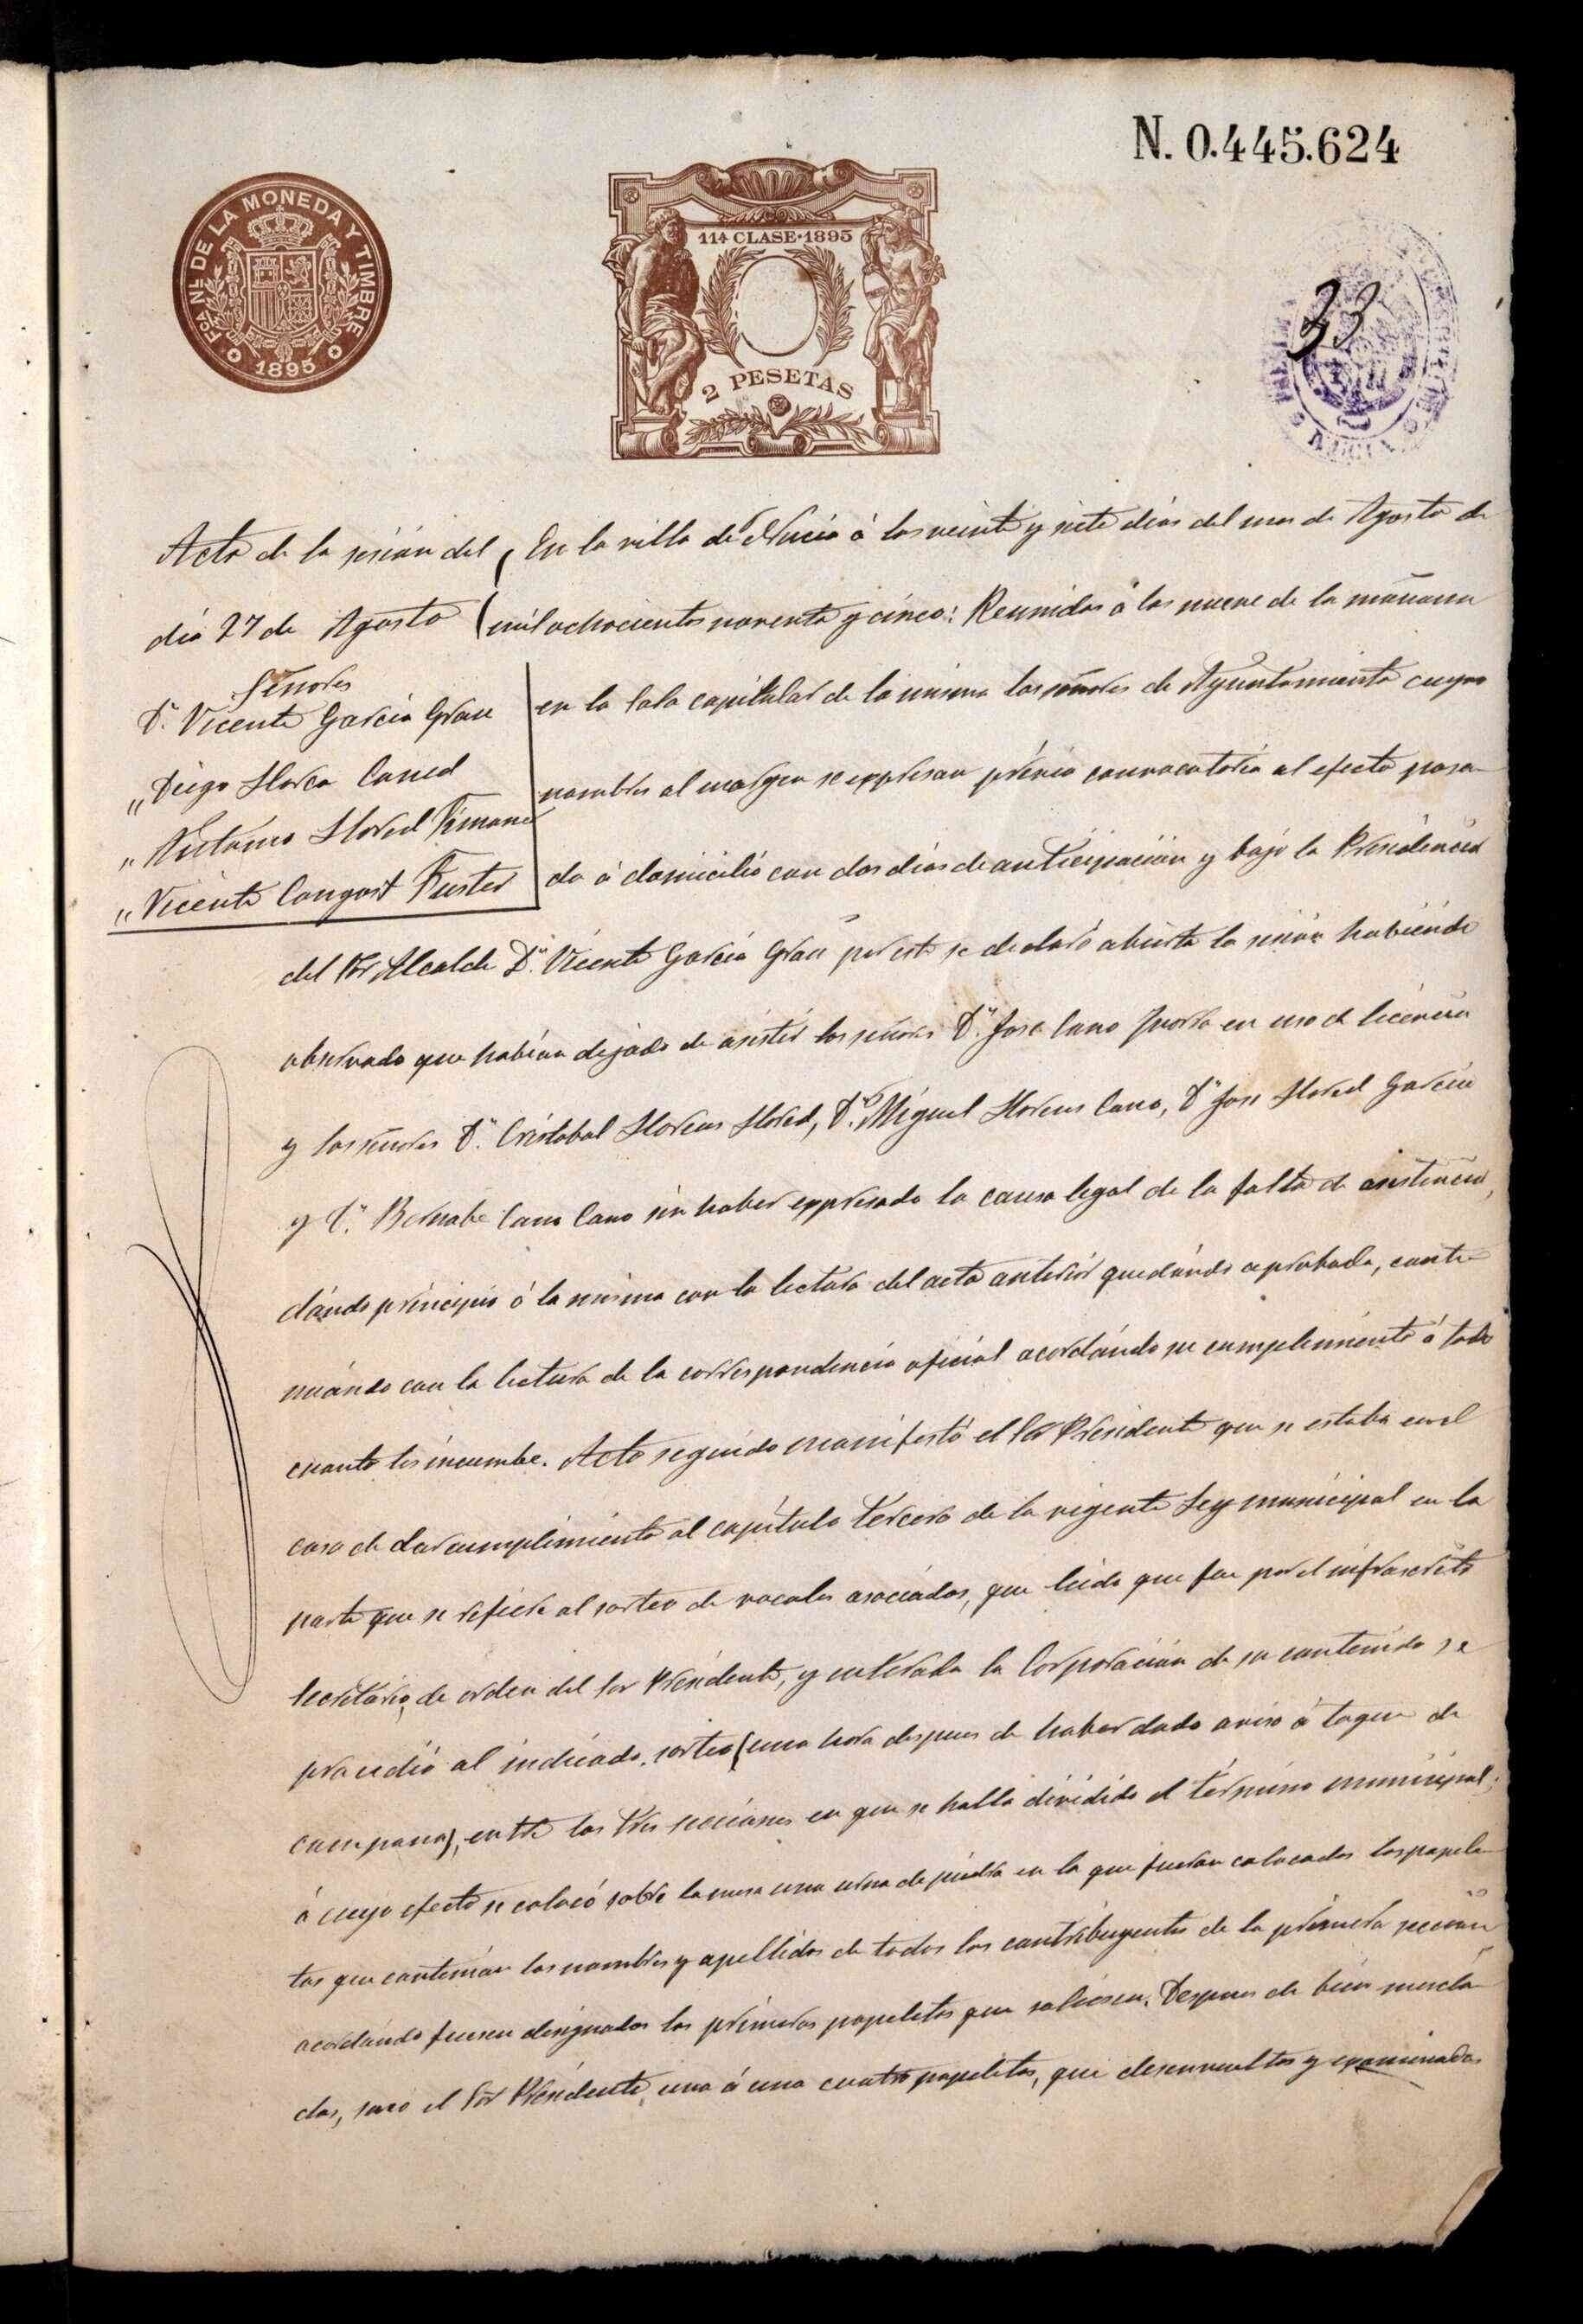 N. 0.445.624
FCA. NL. DE LA MONEDA Y TIMBRE
1895
11ª CLASE·1895
2 PESETAS
33
NUCIA
Acta de la sesión del
día 27 de Agosto
Señores
Dn. Vicente García Grau
„ Diego Llorca Cano
„ Antonio Llored
„ Vicente Llangost Fuster
En la villa de Nucia á los veinte y siete dias del mes de Agosto de
mil ochocientos noventa y cinco: Reunidos á las nueve de la mañana
en la Sala capitular de la misma los señores de Ayuntamiento cuyos
nombres al margen se expresan prévia convocatoria al efecto pasa-
da á domicilio con dos dias de anticipación y bajo la Presidencia
del Sor Alcalde Dn. Vicente García Grau por este se declaró abierta la sesión habiendo
observado que habían dejado de asistir los señores Dn. Jose Cano en uso de licencia
y los señores Dn. Cristobal Llorens Llored, Dn. Miguel Llorens Cano, Dn Jose Llored García
y Dn. Bernabé Cano Cano sin haber expresado la causa legal de la falta de asistencia,
dándo principio á la misma con la lectura del acta anterior quedándo aprobada, conti-
nuándo con la lectura de la correspondencia oficial acordándo su cumplimiento á todo
cuanto les incumbe. Acto seguido manifestó el Sor Presidente que se estaba en el
caso de dar cumplimiento al capítulo tercero de la vigente Ley municipal en la
parte que se refiere al sorteo de vocales asociados, que leido que fue por el infrascrito
Secretario, de órden del Sor Presidente, y enterada la Corporación de su contenido se
procedió al indicado sorteo (una hora despues de haber dado aviso á toque de
campana), entre las tres secciones en que se halla dividido el término municipal;
á cuyo efecto se colocó sobre la mesa una urna de piedra en la que fueron colocadas las papele-
tas que contenían los nombres y apellidos de todos los contribuyentes de la primera sección
acordándo fuesen designados los primeros papeletas que saliesen. Despues de bien mezcla-
das, sacó el Sor Presidente, una á una cuatro papeletas, que desenvueltas y examinadas